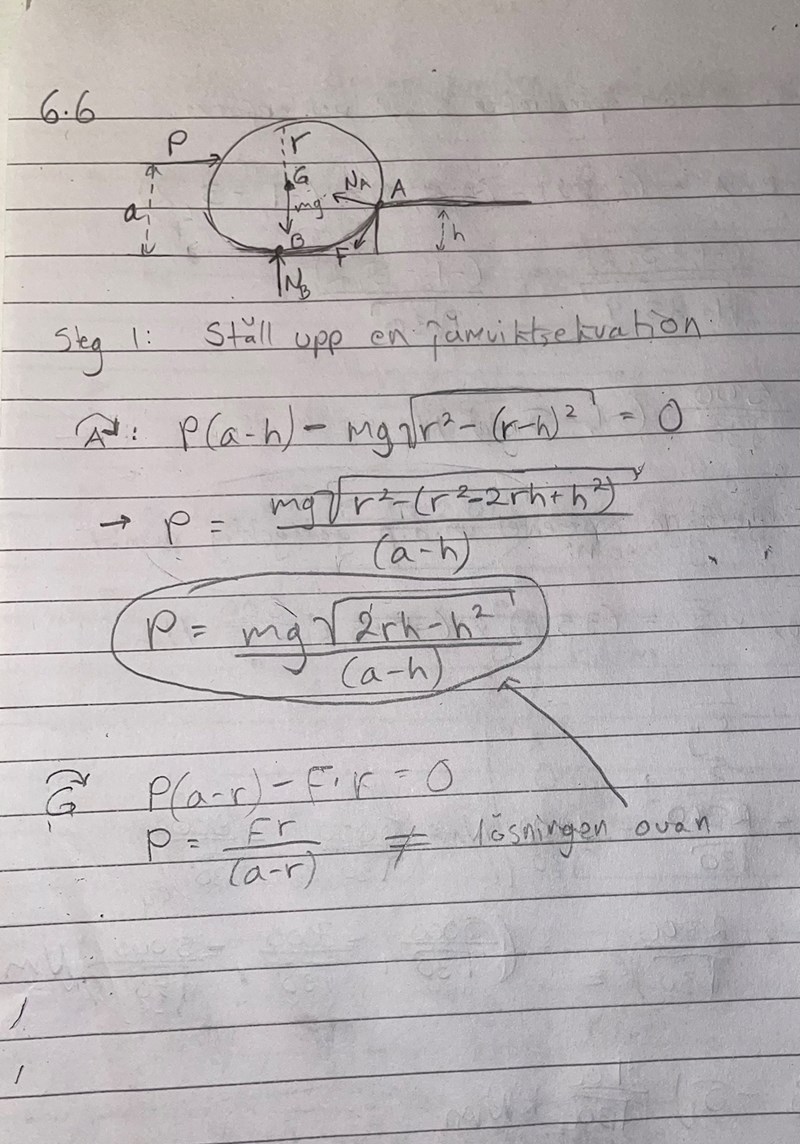 6.6
P
r
G
NA
A
mg
a
B
F
h
NB
Steg 1: Ställ upp en jämviktsekvation.
A: P(a-h) - mg√(r²-(r-h)²) = 0
→ P = mg√(r²-(r²-2rh+h²)) / (a-h)
P = mg√(2rh-h²) / (a-h)
G: P(a-r) - F·r = 0
P = Fr / (a-r) ≠ lösningen ovan